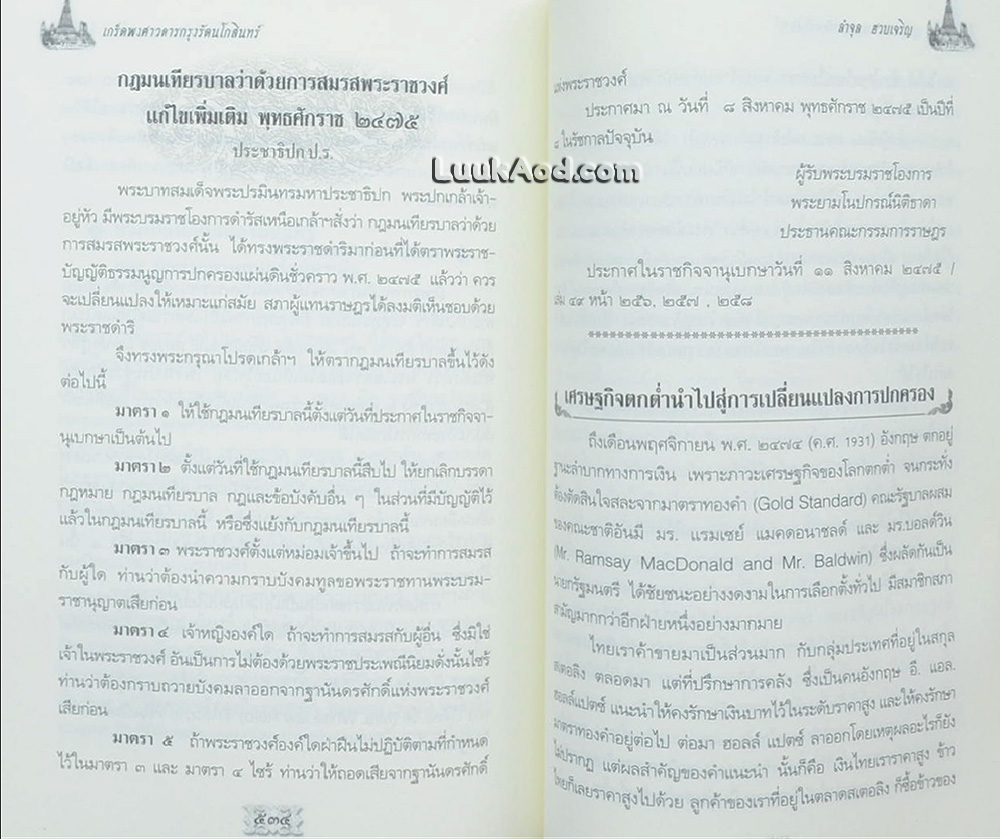 เกร็ดพงศาวดารกรุงรัตนโกสินทร์
กฎมนเทียรบาลว่าด้วยการสมรสพระราชวงศ์
แก้ไขเพิ่มเติม พุทธศักราช ๒๔๗๕
ประชาธิปก ป.ร.
พระบาทสมเด็จพระปรมินทรมหาประชาธิปก พระปกเกล้าเจ้า-
อยู่หัว มีพระบรมราชโองการดำรัสเหนือเกล้าฯสั่งว่า กฎมนเทียรบาลว่าด้วย
การสมรสพระราชวงศ์นั้น ได้ทรงพระราชดำริมาก่อนที่ได้ตราพระราช-
บัญญัติธรรมนูญการปกครองแผ่นดินชั่วคราว พ.ศ. ๒๔๗๕ แล้วว่า ควร
จะเปลี่ยนแปลงให้เหมาะแก่สมัย สภาผู้แทนราษฎรได้ลงมติเห็นชอบด้วย
พระราชดำริ
จึ่งทรงพระกรุณาโปรดเกล้าฯ ให้ตรากฎมนเทียรบาลขึ้นไว้ดัง
ต่อไปนี้
มาตรา ๑ ให้ใช้กฎมนเทียรบาลนี้ตั้งแต่วันที่ประกาศในราชกิจจา-
นุเบกษาเป็นต้นไป
มาตรา ๒ ตั้งแต่วันที่ใช้กฎมนเทียรบาลนี้สืบไป ให้ยกเลิกบรรดา
กฎหมาย กฎมนเทียรบาล กฎและข้อบังคับอื่น ๆ ในส่วนที่มีบัญญัติไว้
แล้วในกฎมนเทียรบาลนี้ หรือซึ่งแย้งกับกฎมนเทียรบาลนี้
มาตรา ๓ พระราชวงศ์ตั้งแต่หม่อมเจ้าขึ้นไป ถ้าจะทำการสมรส
กับผู้ใด ท่านว่าต้องนำความกราบบังคมทูลขอพระราชทานพระบรม-
ราชานุญาตเสียก่อน
มาตรา ๔ เจ้าหญิงองค์ใด ถ้าจะทำการสมรสกับผู้อื่น ซึ่งมิใช่
เจ้าในพระราชวงศ์ อันเป็นการไม่ต้องด้วยพระราชประเพณีนิยมดั่งนั้นไซร้
ท่านว่าต้องกราบถวายบังคมลาออกจากฐานันดรศักดิ์แห่งพระราชวงศ์
เสียก่อน
มาตรา ๕ ถ้าพระราชวงศ์องค์ใดฝ่าฝืนไม่ปฏิบัติตามที่กำหนด
ไว้ในมาตรา ๓ และ มาตรา ๔ ไซร้ ท่านว่าให้ถอดเสียจากฐานันดรศักดิ์
๕๓๔
ลำจุล ฮวบเจริญ
แห่งพระราชวงศ์
ประกาศมา ณ วันที่ ๘ สิงหาคม พุทธศักราช ๒๔๗๕ เป็นปีที่
๘ ในรัชกาลปัจจุบัน
ผู้รับพระบรมราชโองการ
พระยามโนปกรณ์นิติธาดา
ประธานคณะกรรมการราษฎร
ประกาศในราชกิจจานุเบกษาวันที่ ๑๑ สิงหาคม ๒๔๗๕ /
เล่ม ๔๙ หน้า ๒๕๖, ๒๕๗ , ๒๕๘
เศรษฐกิจตกต่ำนำไปสู่การเปลี่ยนแปลงการปกครอง
ถึงเดือนพฤศจิกายน พ.ศ. ๒๔๗๔ (ค.ศ. 1931) อังกฤษ ตกอยู่
ฐานะลำบากทางการเงิน เพราะภาวะเศรษฐกิจของโลกตกต่ำ จนกระทั่ง
ต้องตัดสินใจสละจากมาตราทองคำ (Gold Standard) คณะรัฐบาลผสม
ของคณะชาติอันมี มร. แรมเซย์ แมคดอนาชลด์ และ มร.บอลด์วิน
(Mr. Ramsay MacDonald and Mr. Baldwin) ซึ่งผลัดกันเป็น
นายกรัฐมนตรี ได้ชัยชนะอย่างงดงามในการเลือกตั้งทั่วไป มีสมาชิกสภา
สามัญมากกว่าอีกฝ่ายหนึ่งอย่างมากมาย
ไทยเราค้าขายมาเป็นส่วนมาก กับกลุ่มประเทศที่อยู่ในสกุล
สเตอลิง ตลอดมา แต่ที่ปรึกษาการคลัง ซึ่งเป็นคนอังกฤษ อี. แอล.
ฮอลล์แปตซ์ แนะนำให้คงรักษาเงินบาทไว้ในระดับราคาสูง และให้คงรักษา
มาตราทองคำอยู่ต่อไป ต่อมา ฮอลล์ แปตซ์ ลาออกโดยเหตุผลอะไรก็ยัง
ไม่ปรากฏ แต่ผลสำคัญของคำแนะนำ นั้นก็คือ เงินไทยเราราคาสูง ข้าว
ไทยก็เลยราคาสูงไปด้วย ลูกค้าของเราที่อยู่ในตลาดสเตอลิง ก็ซื้อข้าวของ
LuukAod.com